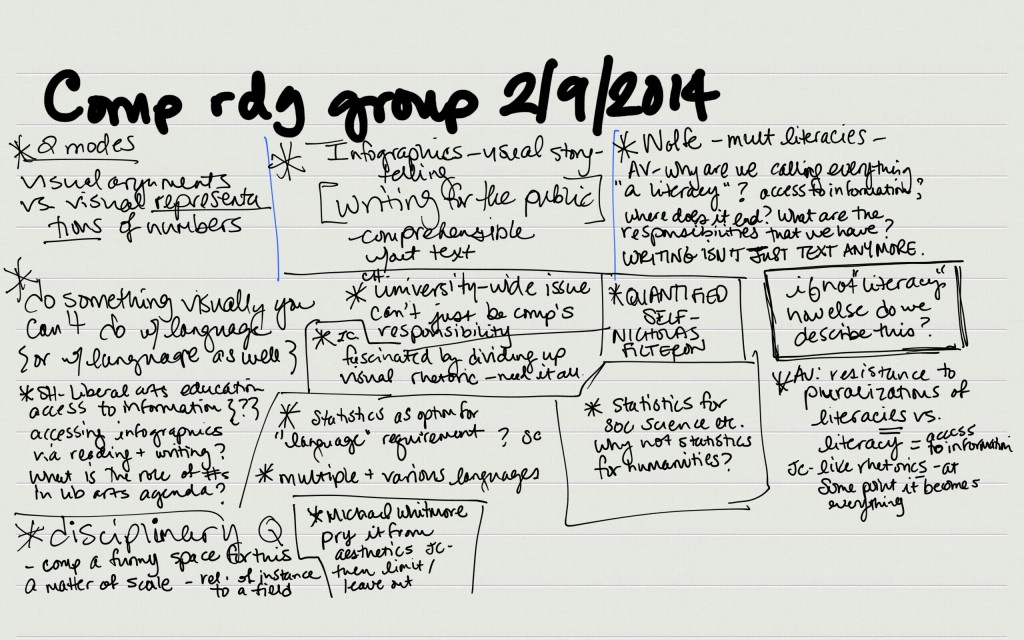 Comp rdg group 2/9/2014
* 2 modes
visual arguments
vs visual representa
tions of numbers
* Infographics - visual story-
telling
[writing for the public]
- comprehensible
w/out text
* Wolfe - mult literacies -
AV - Why are we calling everything
"a literacy"? access to information?
where does it end? What are the
responsibilities that we have?
WRITING ISN'T JUST TEXT ANYMORE.
*
do something visually you
can't do w/language
{or w/language as well}
CH:
* University-wide issue
can't just be comp's
responsibility
* JC:
fascinated by dividing up
visual rhetoric - need it all
* QUANTIFIED
SELF -
NICHOLAS
FILTERON
if not "literacy"
how else do we
describe this?
* SH - Liberal arts education
access to information {??}
accessing infographics
via reading + writing?
What is the role of #s
in lib arts agenda?
* Statistics as option for
"language" requirement ? SC
* multiple + various languages
* Statistics for
soc science etc.
why not statistics
for humanities?
* AV: resistance to
pluralizations of
literacies vs.
literacy = access
to information
JC - like rhetorics - at
some point it becomes
everything
* disciplinary Q
- comp a funny space for this
a matter of scale - rel. of instance
to a field
* Michael Whitmore
pry it from
aesthetics JC -
then limit/
leave out